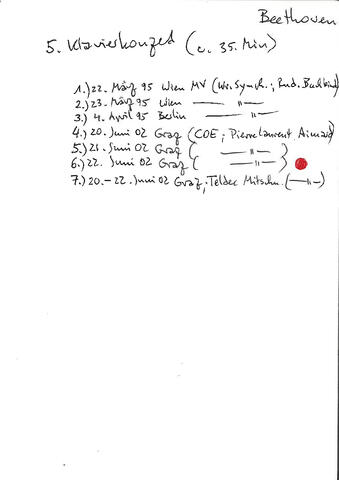 Beethoven
5. Klavierkonzert (c. 35. Min)
1.) 22. März 95 Wien MV (Wr. Symph.; Rud. Buchbind
2.) 23. März 95 Wien —— " ——
3.) 4. April 95 Berlin —— " ——
4.) 20. Juni 02 Graz (COE; Pierre Laurent Aimard)
5.) 21. Juni 02 Graz ( —— " —— )
6.) 22. Juni 02 Graz ( —— " —— )
7.) 20.–22. Juni 02 Graz; Teldec Mitschn. (—"—)